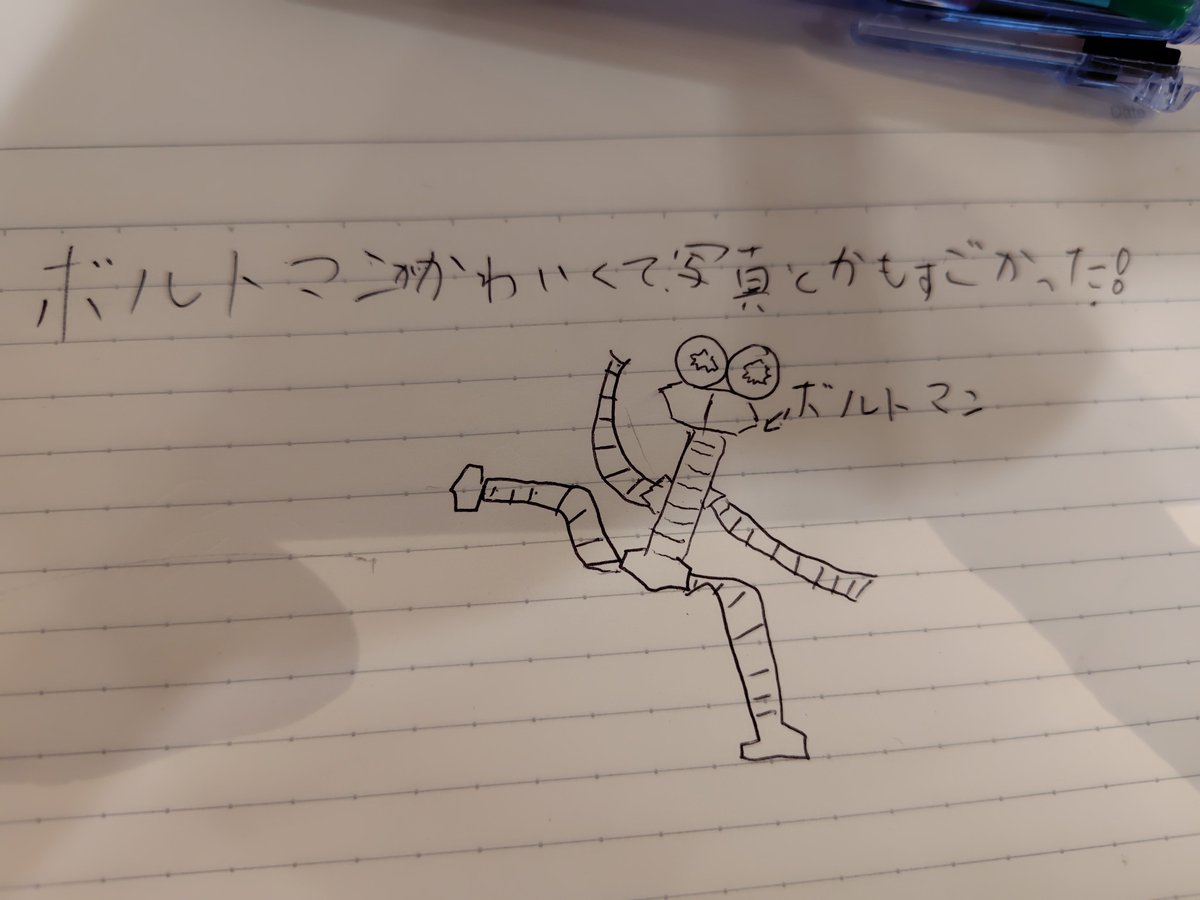 ボルトマンがかわいくて写真とかもすごかった!
ボルトマン
Date